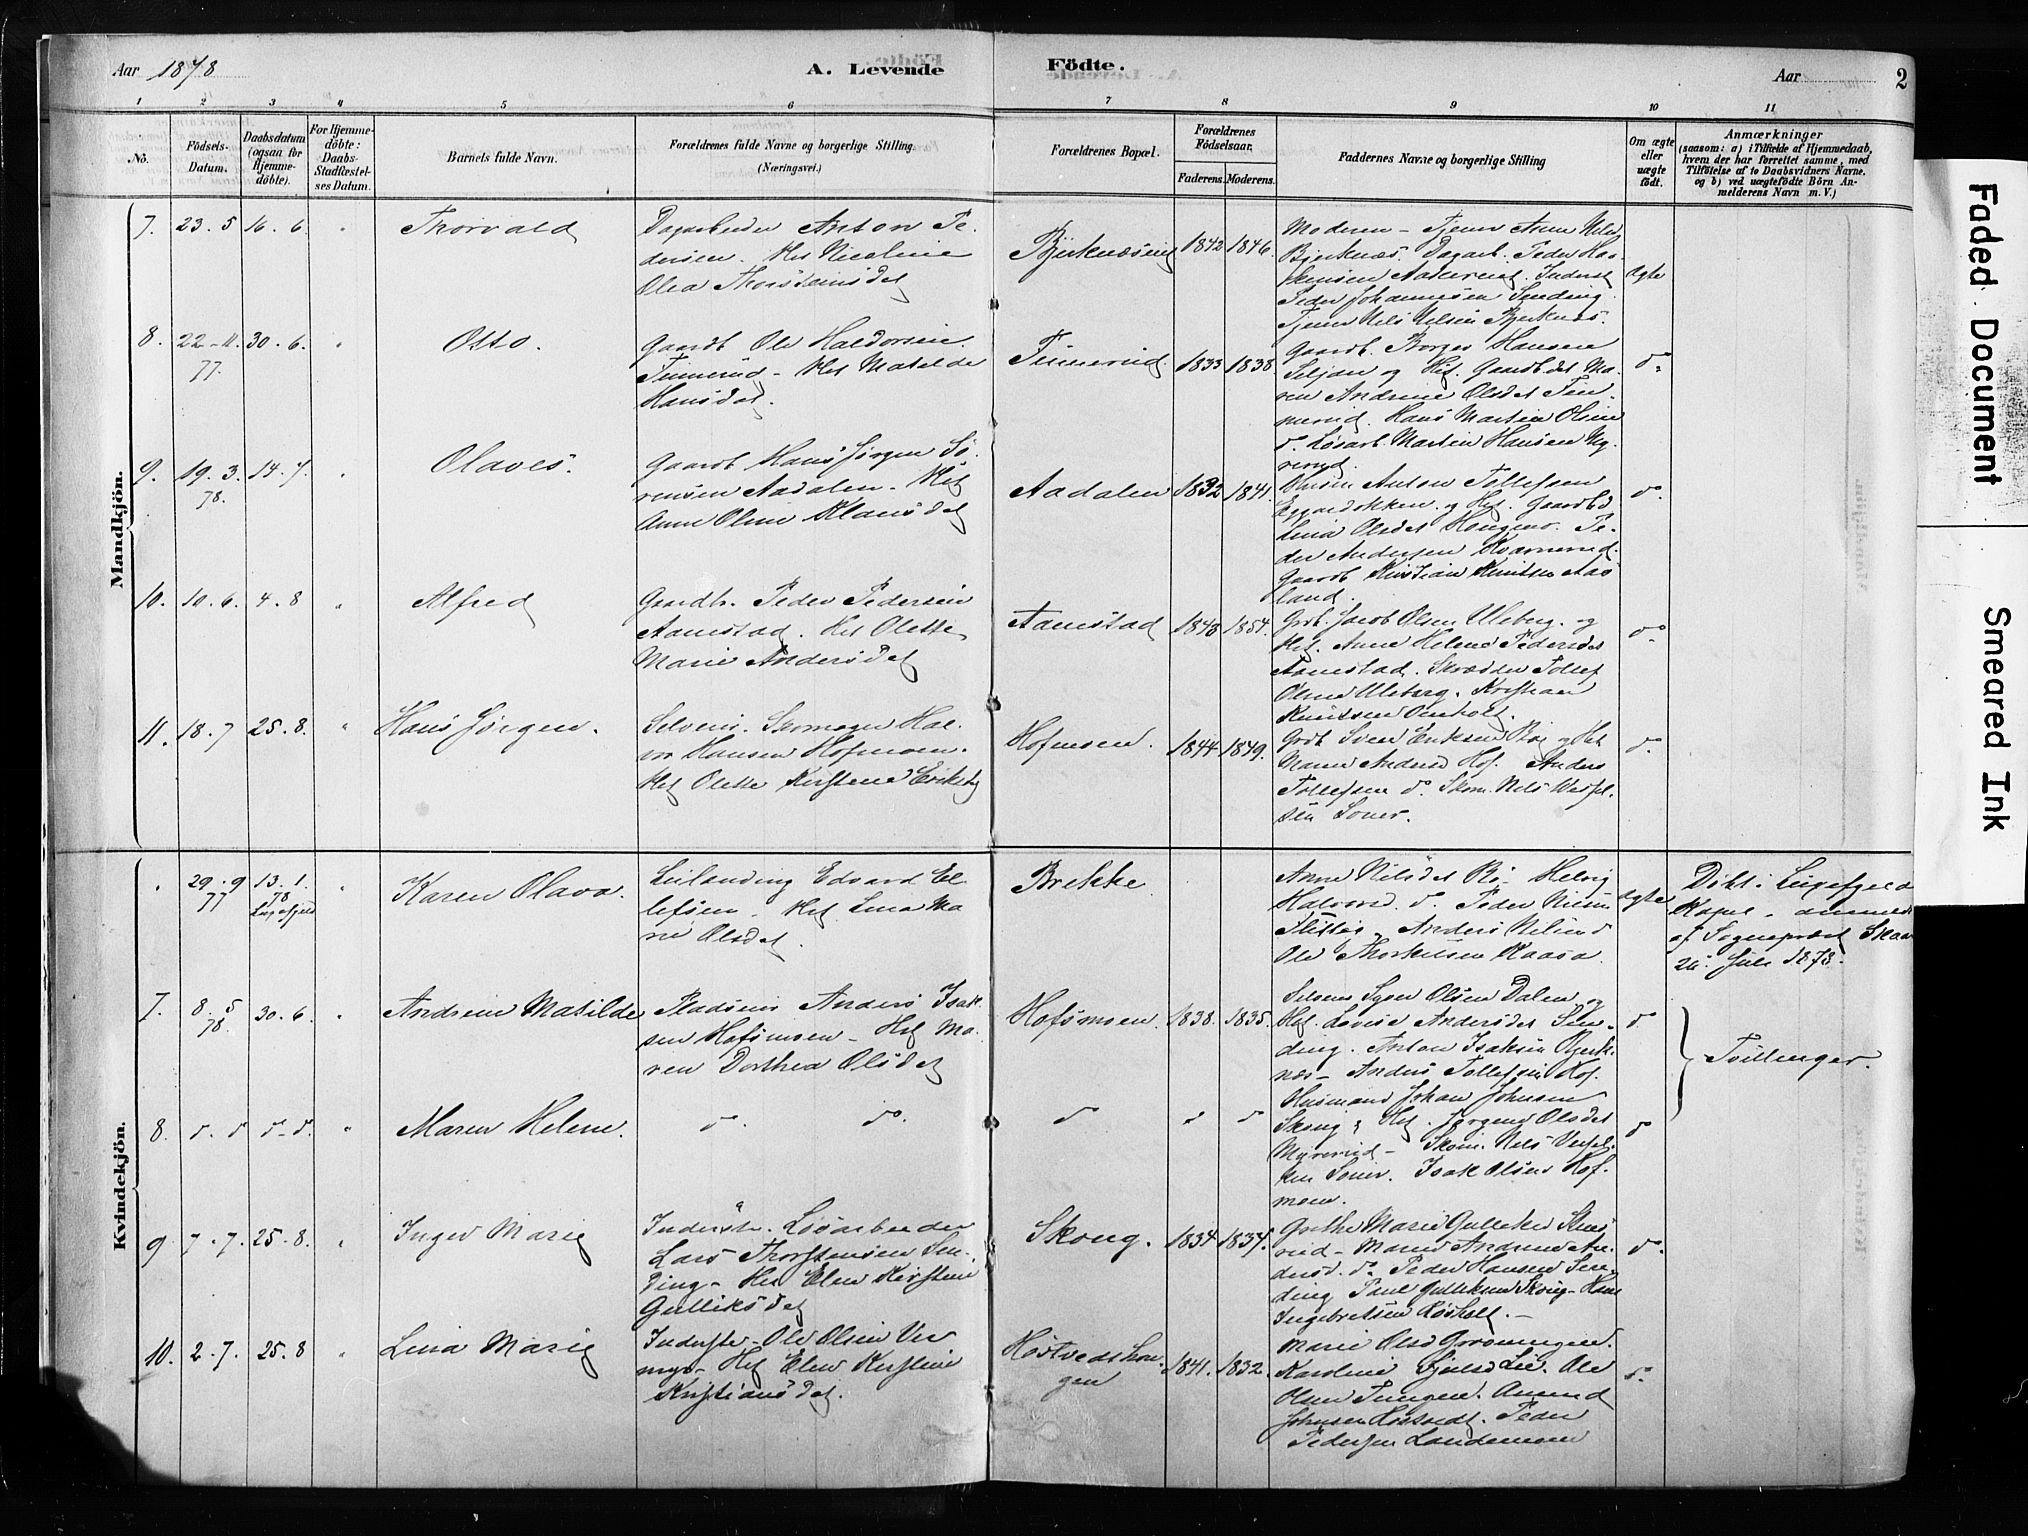 Aar 1878
A. Levende
Födte.
Aar
2
1 2 3 4 5 6 7 8 9 10 11
No.
Födsels-
Datum.
Daabsdatum
(ogsaa for
Hjemme-
döbte).
For Hjemme-
döbte:
Daabs-
Stadfæstel-
ses Datum.
Barnets fulde Navn.
Forældrenes fulde Navne og borgerlige Stilling.
(Næringsvei.)
Forældrenes Bopæl.
Forældrenes
Födselsaar.
Faderens. Moderens.
Faddernes Navne og borgerlige Stilling
Om ægte
eller
uægte
födt.
Anmærkninger
(saasom: a) i Tilfælde af Hjemmedaab,
hvem der har forrettet samme, med
Tilföielse af to Daabsvidners Navne,
og b) ved uægtefödte Börn An-
melderens Navn m. V.)
Mandkjön.
7. 23. 5 16. 6. " Thorvald
Dagarbeider Anton Pe-
dersen. Hst Nicoline
Olea Thorsteinsdat
Bjerknæseng 1842 1846
Moderen - Tjener Anne Nils
Bjerknæs. Dagarb. Peder Haa-
kensen Inderst
Peder Johannesen Sending
Tjener Nils Nilsen Bjerknæs.
ægte
8. 22-11. 77 30. 6. " Otto.
Gaardb. Ole Haldorsen
Tinnerud - Hst Matilde
Hansdat.
Tinnerud 1833 1838
Gaardb. Borger Hansen
Seljan og Hst. Gaardb.dat Ma-
ren Andrine Olsdat Tin-
nerud. Hans Martin Olsen
do. Løsarb. Martin Hansen My-
rerud.
do.
9. 19. 3. 78. 14. 7. " Olaves.
Gaardb Hans Jørgen Sø-
rensen Aadalen - Hst
Anne Oline Klausdat
Aadalen 1832 1841.
Husm Anton Tollefsen
og Hst. Gaardbd
Lina Olsdat Pe-
der Andersen Kvarnerud
Gaardb Kristian Knutsen Aas-
land.
do.
10. 10. 6. 4. 8 " Alfred
Gaardb. Peder Pedersen
Aamstad. Hst Olette
Marie Andersdat
Aamstad 1843 1854.
Grdb. Jacob Olsen Uleberg. og
Hst. Anne Helene Pedersdat
Aamstad. Skrædder Tollef
Olsen Uleberg. Kristian
Knutsen Omholt.
do.
11. 18. 7 25. 8. " Hans Jørgen.
Selveier Skomager Hal-
vor Hansen Hofsmoen.
Hst Olette Kirstine Eriksdat
Hofsmoen. 1844 1849.
Grdb Sven Eriksen Bøe og Hst
Maren Andersd Hof. Anders
Tollefsen do. Skom. Nils Wessel-
sen Soner.
do.
Kvindekjön.
. 29. 9 77 13. 1. 78 Luxefjeld " Karen Olava.
Leilænding Edvard El-
lefsen - Hst Lina Ma-
rie Olsdat.
Brekke.
Anne Nilsdat Bø - Helvig
Halvorsd. do. Peder
Anders Nilsen do
Ole Thorkilsen Kaasa.
ægte
Døbt i Luxefjeld
Kapel. anmeldt
af Sogneprest Skaar
20. Juli 1878.
7. 8. 5 78. 30. 6. " Andrine Matilde
Pladseier Anders Isak-
sen Hofsmoen - Hst Ma-
ren Dorthea Olsdat
Hofsmoen. 1838. 1835.
Selveier Syver Olsen Dalen og
Hst. Lovise Andersdat Sen-
ding. Anton Isaksen Bjerk-
næs - Anders Tollefsen Hof.
do
Tvillinger.
8. do. do do-do. " Maren Helene.
do. do. do do do
Husmand Johan Johnsen
Skoug & Hst. Jørgine Olsdat
Myrerud - Skom. Nils Wessel-
sen Soner. Isak Olsen Hof-
moen.
do
9 7. 7. 25. 8. " Inger Marie
Inderste. Løsarbeider
Lars Thorstensen Sen-
ding - Hst Elen Kirstine
Gulliksdat
Skoug. 1834 1834.
Grethe Marie Gulliksd
rud - Maren Andrine An-
dersd. do. Peder Hansen Sen-
ding Paul Gulliksen Skoug - Hans
Ingebretsen Røsholt. -
do.
10. 2. 7. 25. 8 " Lina Marie
Inderste - Ole Olsen Ver-
myr - Hst Elen Kirstine
Kristiansdat.
Høstvedthau-
gen 1841. 1832.
Marie Olsd Grønningen.
Karoline Lie. Ole
Olsen Tungene. Amund
Johnsen Høstvedt. Peder
Pedersen Landemoen
do.
Faded Document
Smeared Ink